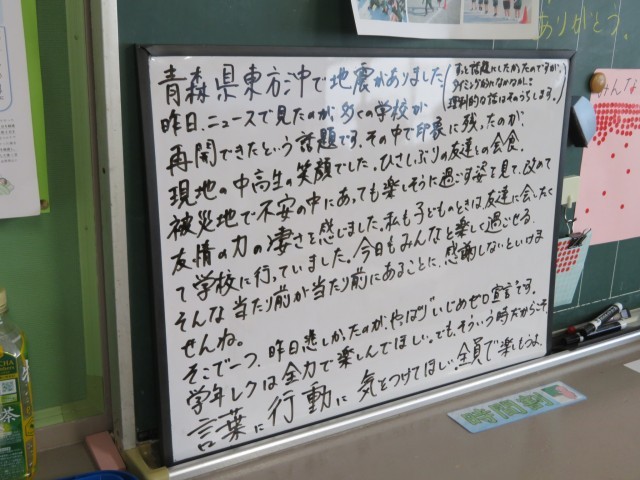 ありがとう。
青森県東方沖で地震がありました
(ずっと話題にしたかったのですが、
タイミング的になかなか…
理科的な話はそのうちします。)
昨日、ニュースで見たのが、多くの学校が
再開できたという話題です。その中で印象に残ったのが、
現地の中高生の笑顔でした。ひさしぶりの友達との会食。
被災地で不安の中にあっても楽しそうに過ごす姿を見て、改めて
友情の力の凄さを感じました。私も子どものときは、友達に会いたく
て学校に行っていました。今日もみんなと楽しく過ごせる、
そんな当たり前が当たり前にあることに、感謝しないといけま
せんね。
そこで一つ、昨日悲しかったのが、やっぱり"いじめゼロ宣言"です。
学年レクは全力で楽しんでほしい。でも、そういう時だからこそ
言葉に行動に気をつけてほしい。全員で楽しもうよ。
みんな
時間割
茶